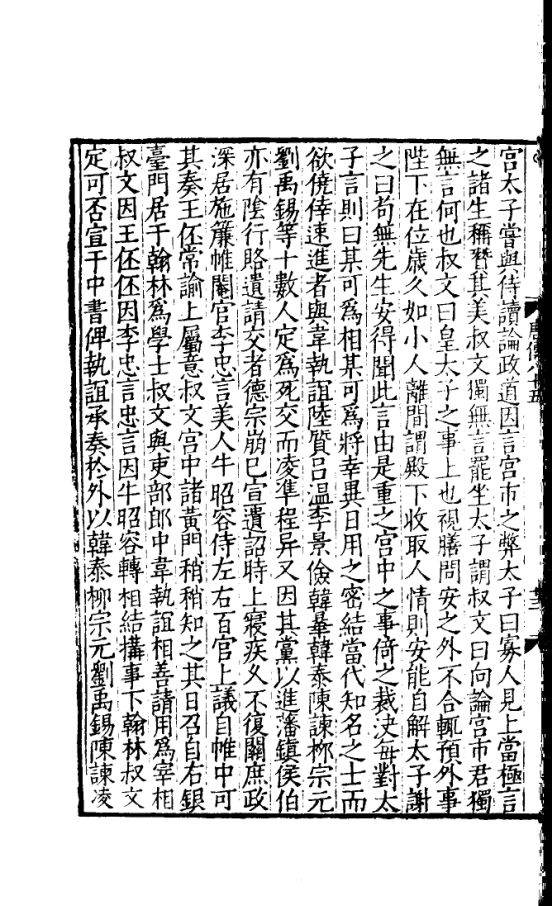 宫太子嘗與侍讀論政道因言宫市之弊太子曰寡人見上當極言
之諸生稱賛其美叔文獨無言罷坐太子謂叔文曰向論宫市君獨
無言何也叔文曰皇太子之事上也視膳問安之外不合輒預外事
陛下在位歲久如小人離間謂殿下收取人情則安能自解太子謝
之曰苟無先生安得聞此言由是重之宫中之事倚之裁決每對太
子言則曰某可爲相某可爲將幸異日用之密結當代知名之士而
欲僥倖速進者與韋執誼陸質吕温李景儉韓曄韓泰陳諫柳宗元
劉禹錫等十數人定爲死交而凌準程异又因其黨以進藩鎮侯伯
亦有隂行賂遺請交者德宗崩已宣遺詔時上寢疾久不復關庶政
深居施簾帷閹官李忠言美人牛昭容侍左右百官上議自帷中可
其奏王伾常諭上屬意叔文宫中諸黃門稍稍知之其日召自右銀
臺門居于翰林爲學士叔文與吏部郎中韋執誼相善請用爲宰相
叔文因王伾伾因李忠言忠言因牛昭容轉相結搆事下翰林叔文
定可否宣于中書俾執誼承奏於外以韓泰柳宗元劉禹錫陳諫凌